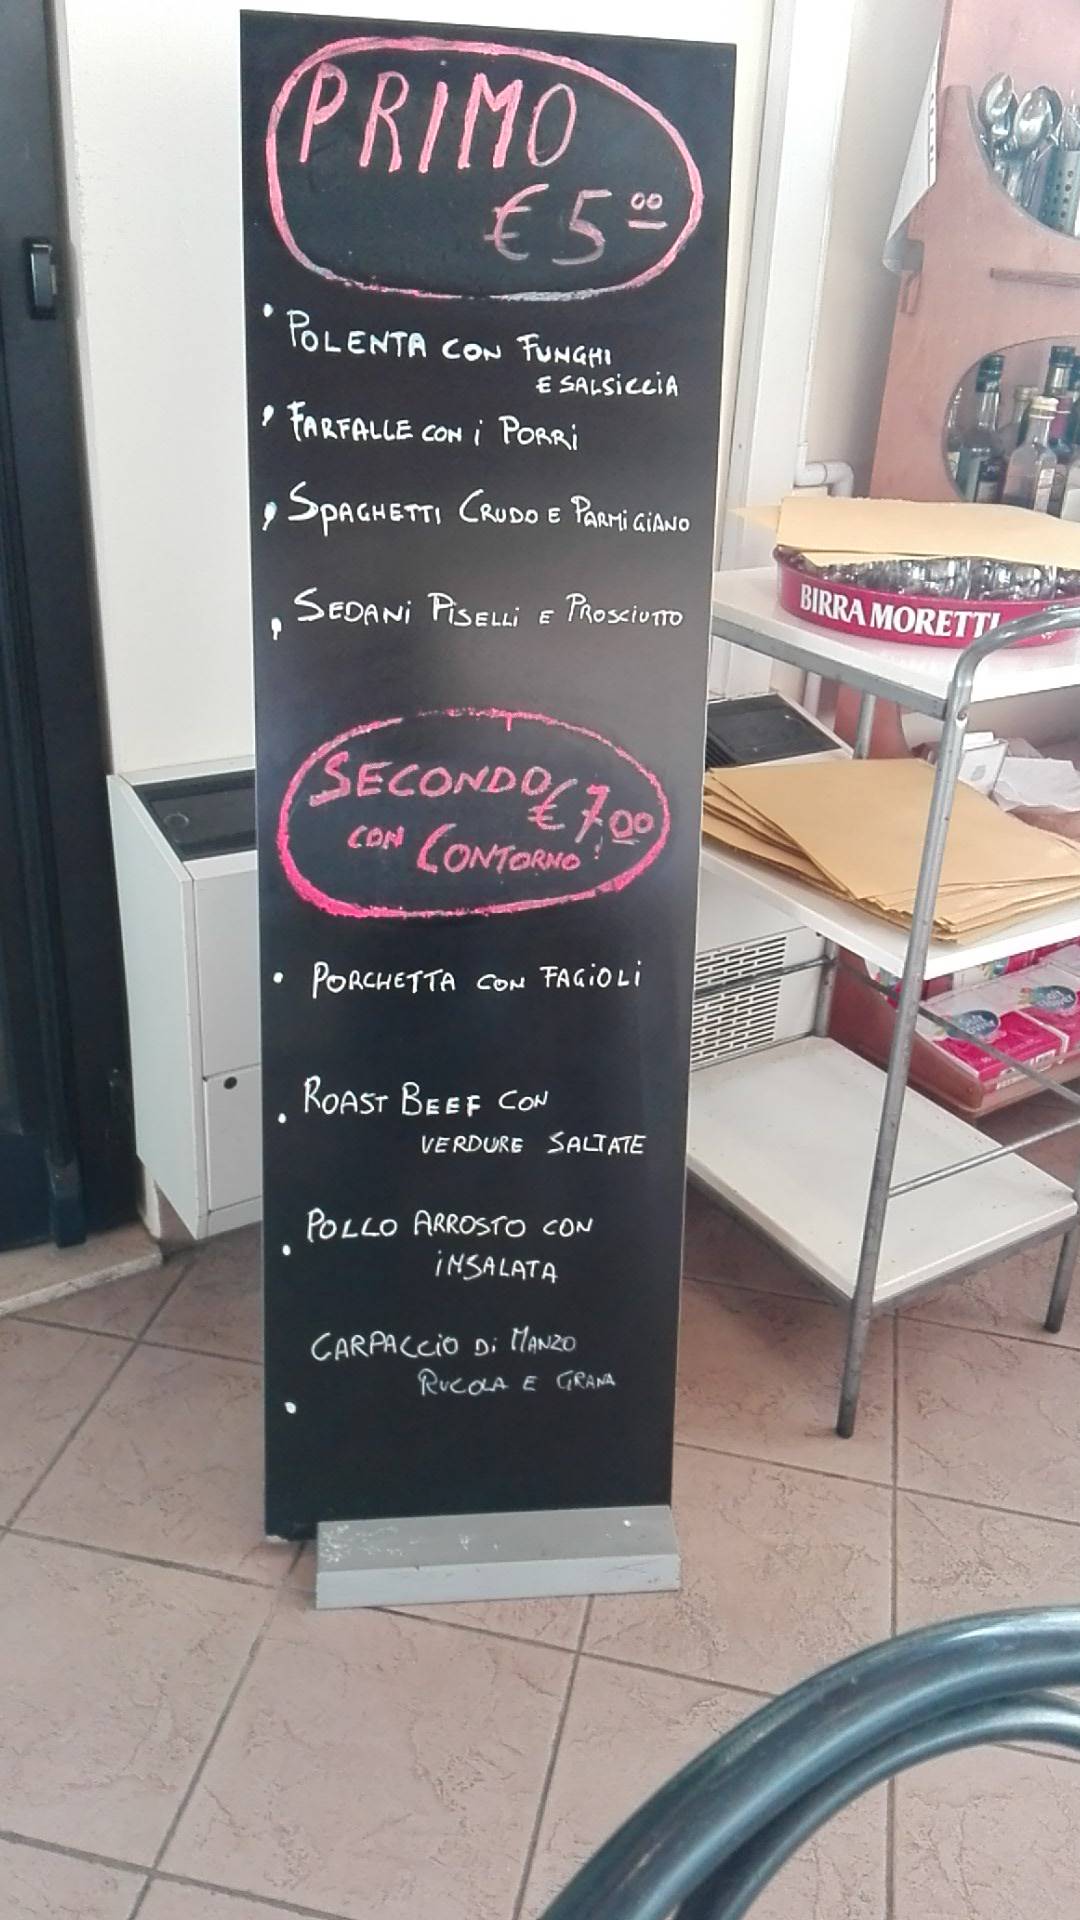 PRIMO
€ 5 00
• POLENTA CON FUNGHI
E SALSICCIA
• FARFALLE CON i PORRi
• SPAGHETTI CRUDO E PARMiGiANO
• SEDANi PiSELLi E PROSCiUTTO
SECONDO
€ 7,00
CON CONTORNO
• PORCHETTA CON FAGiOLi
• ROAST BEEF CON
VERDURE SALTATE
• POLLO ARROSTO CON
iNSALATA
• CARPACCiO Di MANZO
RUCOLA E GRANA
BIRRA MORETTI